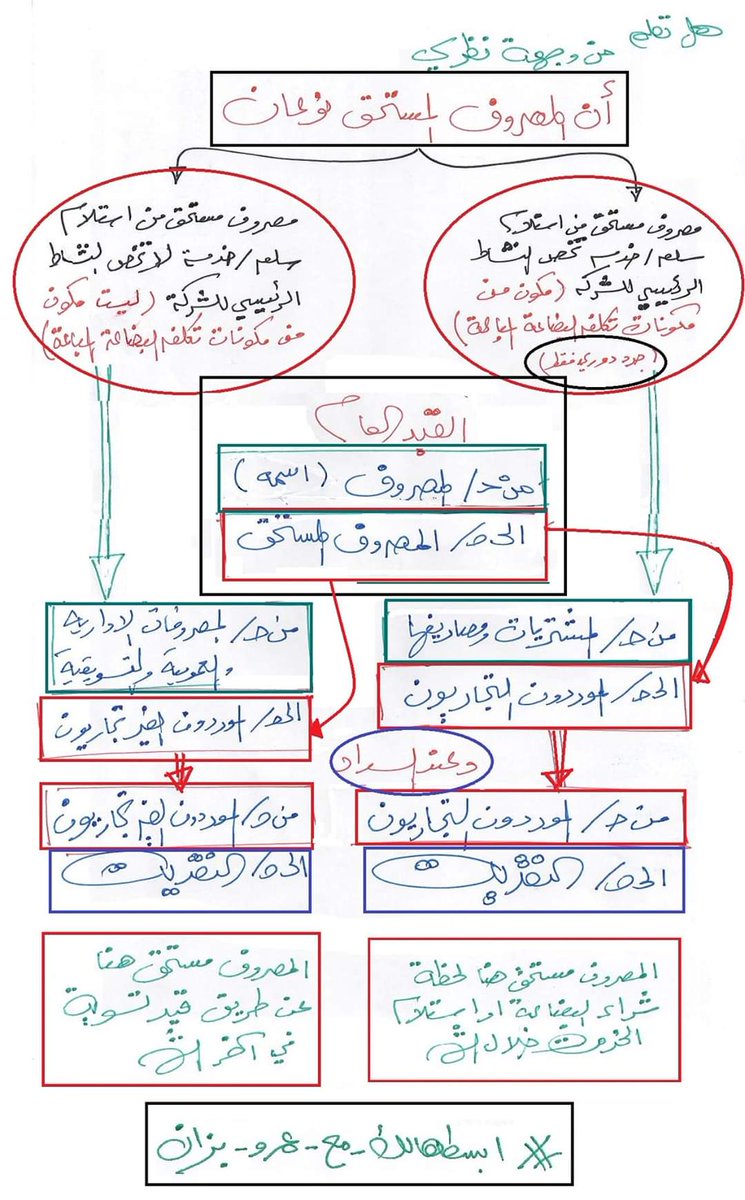 هل تعلم
من وجهة نظري
أن المصروف المستحق نوعان
مصروف مستحق من استلام
سلع/خدمة تخص النشاط
الرئيسي للشركة (مكون من
مكونات تكلفه البضاعة المباعة)
(جرد دوري فقط)
مصروف مستحق من استلام
سلع/خدمة لا تخص النشاط
الرئيسي للشركة (ليست مكون
من مكونات تكلفه البضاعة المباعة)
القيد العام
من حـ/ المصروف (اسمه)
الى حـ/ المصروف المستحق
من حـ/ المشتريات ومصاريفها
الى حـ/ الموردون التجاريون
من حـ/ المصروفات الادارية
والعمومية والتسويقية
الى حـ/ الموردون الغير تجاريون
وعند السداد
من حـ/ الموردون التجاريون
الى حـ/ النقدية
من حـ/ الموردون الغير تجاريون
الى حـ/ النقدية
المصروف مستحق هنا لحظة
شراء البضاعة او استلام
الخدمة خلال الشهر
المصروف مستحق هنا
عن طريق قيد تسوية
في اخر الشهر
# ابسطهالك - مع - عمرو - بزان